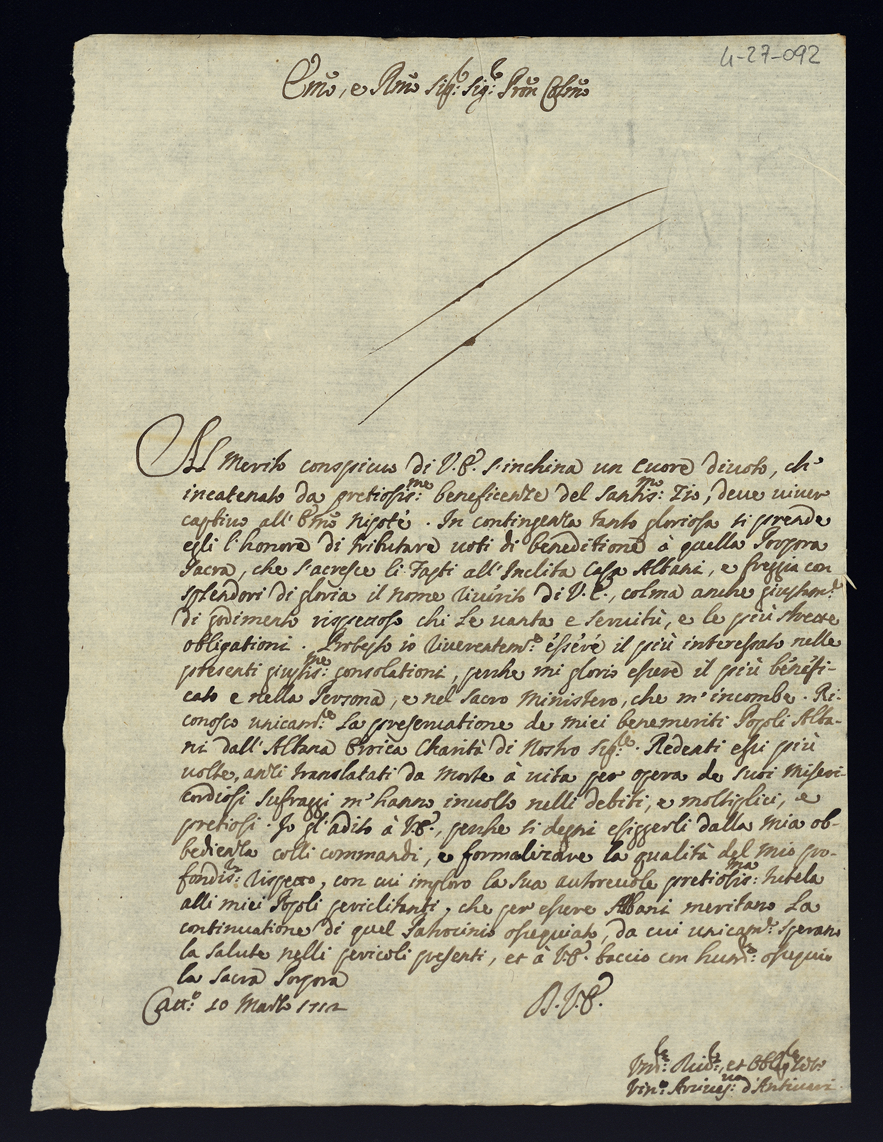 4-27-092
Emo, e Rmo Sigr: Sigr: Pron Colmo
Al Merito conspicuo di V.E. s'inchina un cuore divoto, ch'
incatenato da pretiosisme: beneficenze del Santismo: Zio, deve viver
captivo all'Emo Nipote. In contingenza tanto gloriosa si prende
egli l'honore di tributare voti di beneditione à quella Porpora
Sacra, che s'acresce li Fasti all'Inclita Casa Albani, e freggia con
splendori di gloria il nome riverito di V.E., colma anche giustamte
di godimento rispettoso chi Le vanta e servitù, e le più strette
obligationi. Protesto io riverentemte essere il più interessato nelle
presenti giustisme: consolationi, perche mi glorio essere il più benefi-
cato e nella Persona, e nel Sacro Ministero, che m'incombe. Ri-
conosco unicamte La preservatione de miei benemeriti Popoli Alba-
ni dall'Albana Eroica Charità di Nostro Sigre. Redenti essi più
volte, anzi translatati da Morte à vita per opera de suoi Miseri-
cordiosi suffraggi m'hanno involto nelli debiti, e moltiplici, e
pretiosi. Io gl'adito à V.E., perche si degni esiggerli dalla mia ob-
bedienza colli commandi, e formalizare la qualità del mio pro-
fondiso: rispetto, con cui imploro la sua autorevole pretiosisma: tutela
alli miei Popoli periclitanti, che per essere Albani meritano La
continuatione di quel Patrocinio ossequiato, da cui unicamte sperano
la salute nelli pericoli presenti, et à V.E. baccio con humo: ossequio
la Sacra Porpora
Catto: 10 Marzo 1712
D.V.E.
Vmle: Divle: et Obligle
Vino Arcives: d'Antivari